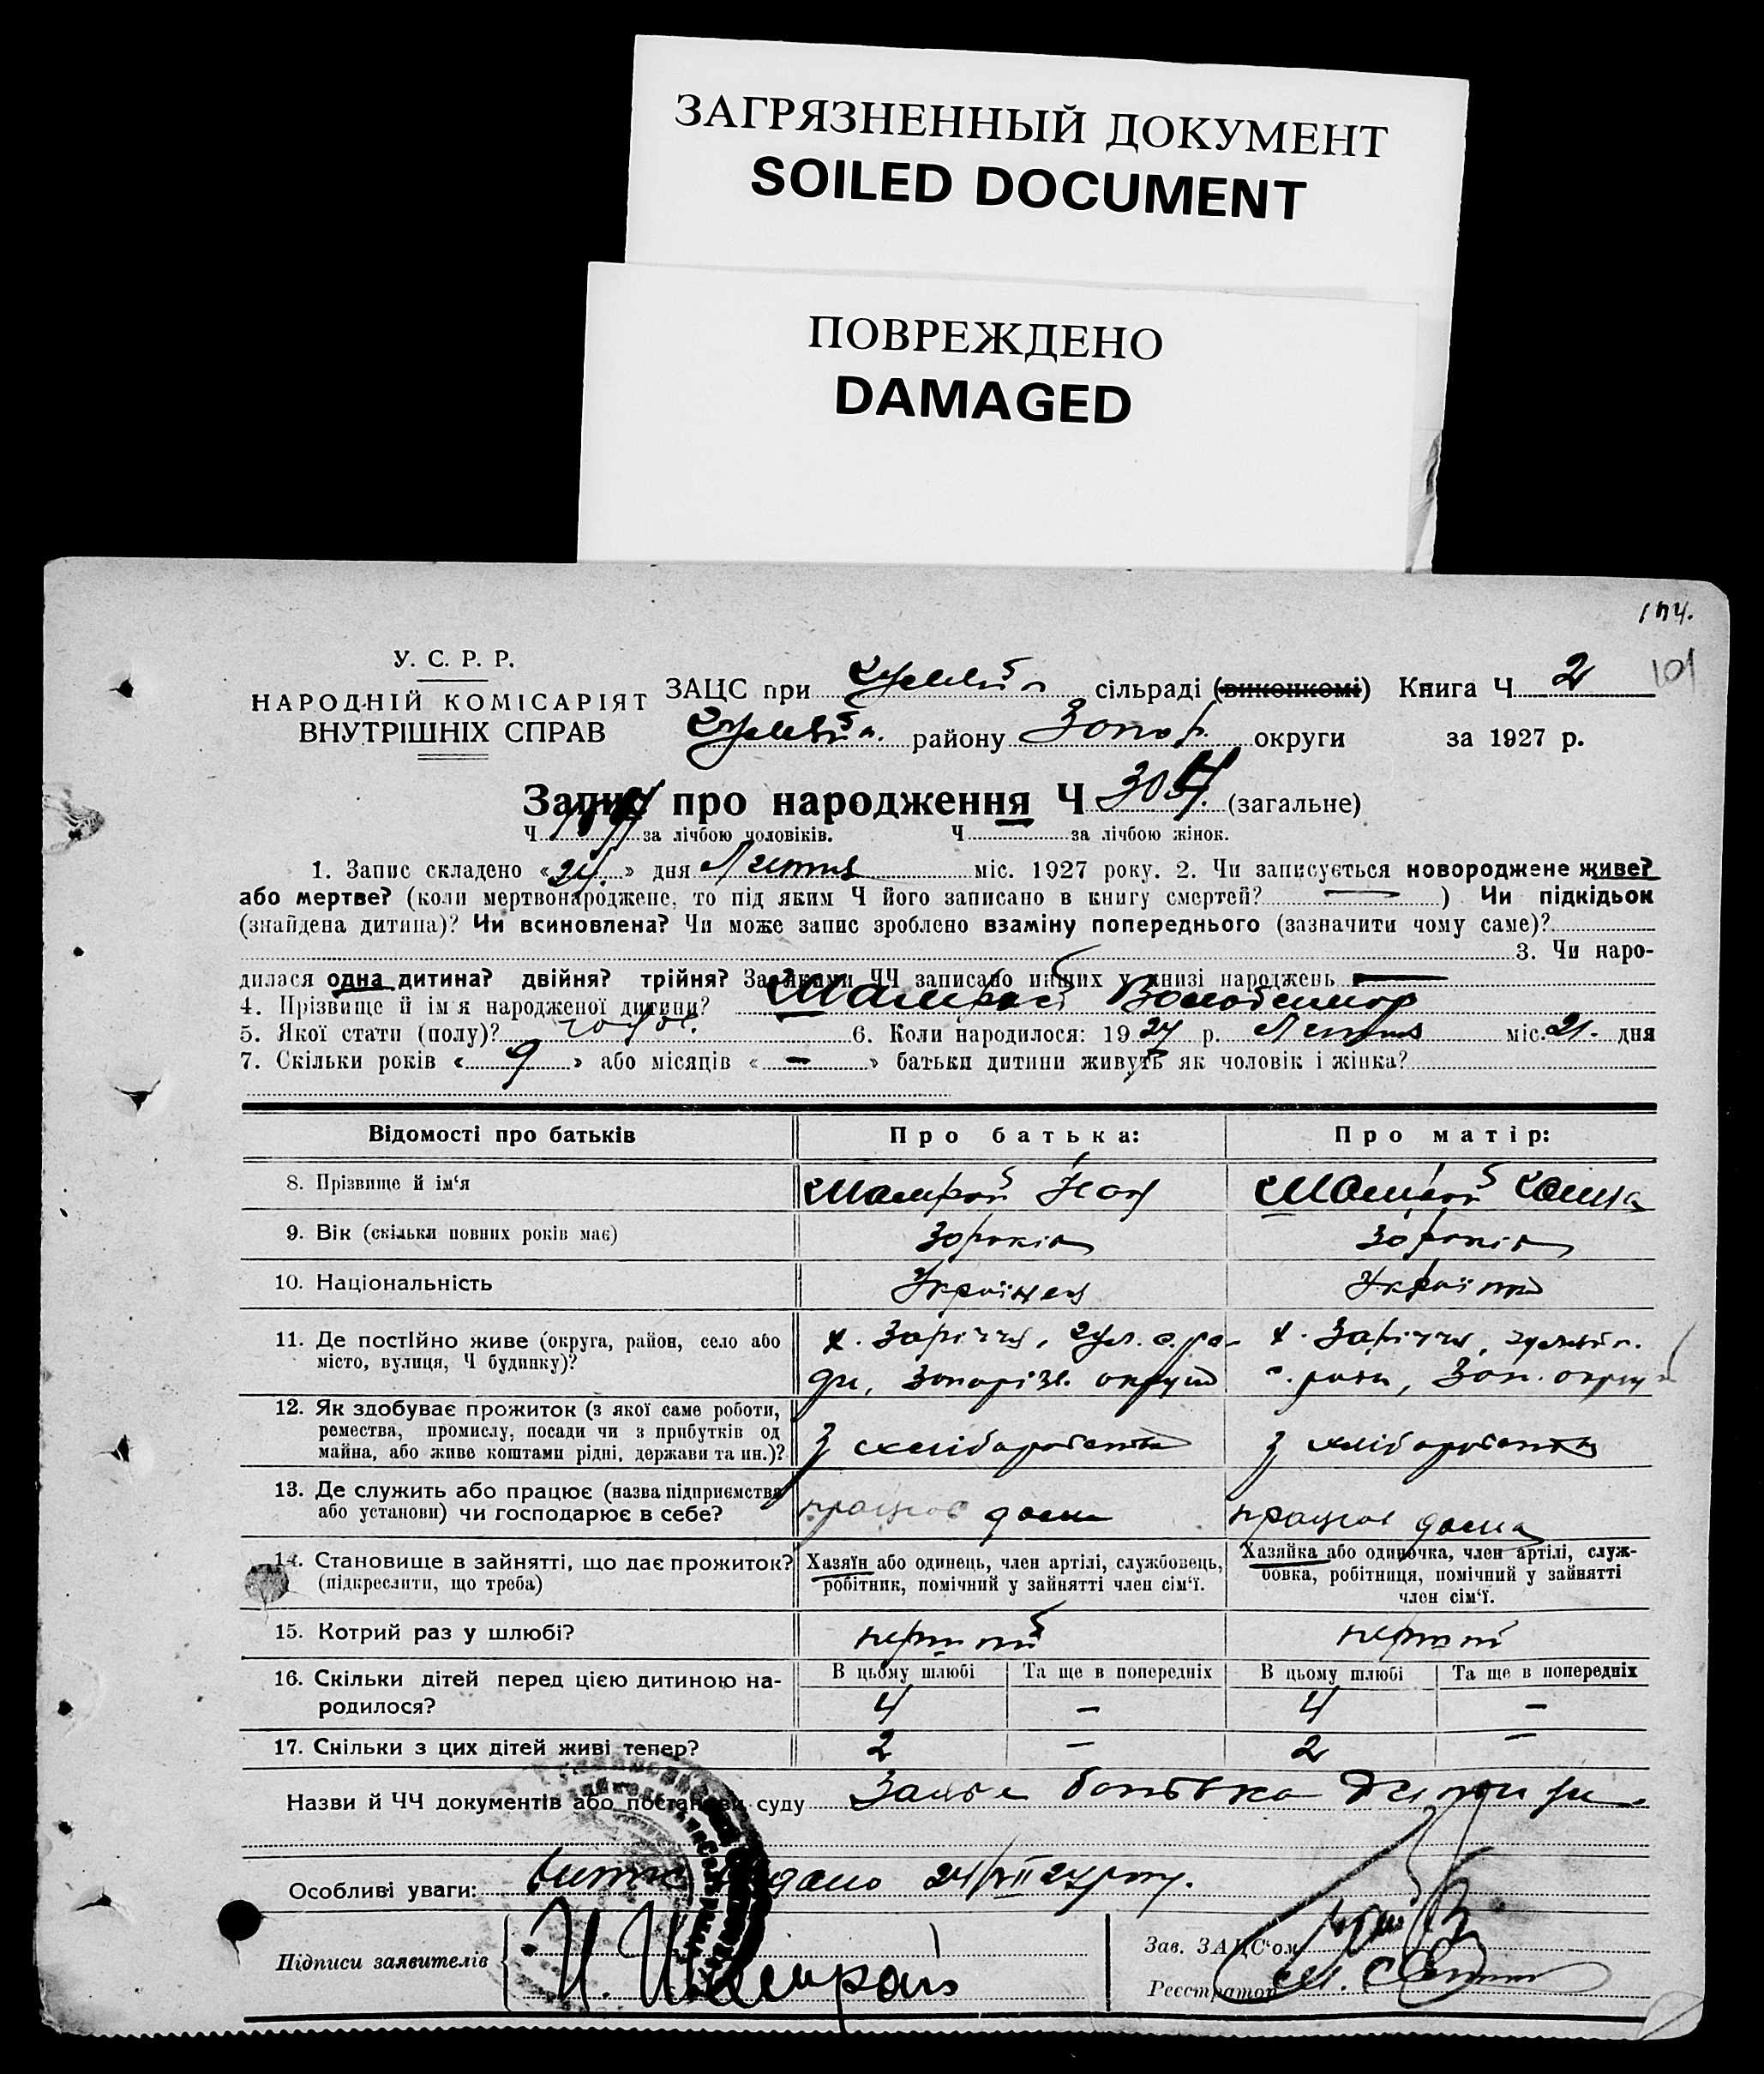 ЗАГРЯЗНЕННЫЙ ДОКУМЕНТ
SOILED DOCUMENT
ПОВРЕЖДЕНО
DAMAGED
У. С. Р. Р.
НАРОДНІЙ КОМІСАРІЯТ
ВНУТРІШНІХ СПРАВ
101
ЗАЦС при сільраді (виконкомі) Книга Ч 2
району Запор. округи за 1927 р.
Запис про народження Ч 304. (загальне)
Ч за лічбою чоловіків. Ч за лічбою жінок.
1. Запис складено «24.» дня Липня міс. 1927 року. 2. Чи записується новороджене живе?
або мертве? (коли мертвонароджене, то під яким Ч його записано в книгу смертей? — ) Чи підкідьок
(знайдена дитина)? Чи всиновлена? Чи може запис зроблено взаміну попереднього (зазначити чому саме)?
3. Чи наро-
дилася одна дитина? двійня? трійня? За якими ЧЧ записано инших у книзі народжень —
4. Прізвище й ім'я народженої дитини? Шамрай Володимир
5. Якої стати (полу)? чолов. 6. Коли народилося: 1927 р. Липня міс. 21. дня
7. Скільки років « 9 » або місяців « — » батьки дитини живуть як чоловік і жінка?
Відомості про батьків
Про батька:
Про матір:
8. Прізвище й ім'я
Шамрай
Шамрай
9. Вік (скільки повних років має)
30 років
30 років
10. Національність
Українец
Українка
11. Де постійно живе (округа, район, село або
місто, вулиця, Ч будинку)?
х. Заріччя, Гул. с. ра-
ди, Запоріз. округи
х. Заріччя, Гуляйп.
с. ради, Зап. округи
12. Як здобуває прожиток (з якої саме роботи,
ремества, промислу, посади чи з прибутків од
майна, або живе коштами рідні, держави та ин.)?
З хліборобства
З хліборобства
13. Де служить або працює (назва підприємства
або установи) чи господарює в себе?
працює дома
працює дома
14. Становище в зайнятті, що дає прожиток?
(підкреслити, що треба)
Хазяїн або одинець, член артілі, службовець,
робітник, помічний у зайнятті член сім'ї.
Хазяйка або одиночка, член артілі, служ-
бовка, робітниця, помічний у зайнятті
член сім'ї.
15. Котрий раз у шлюбі?
перший
перший
16. Скільки дітей перед цією дитиною на-
родилося?
В цьому шлюбі Та ще в попередніх В цьому шлюбі Та ще в попередніх
4 — 4 —
17. Скільки з цих дітей живі тепер?
2 — 2 —
Назви й ЧЧ документів або постанови суду Заява батька
Особливі уваги: видано 24/VII 27 року.
Підписи заявителів
Шамрай
Зав. ЗАЦС'ом
Реєстратор